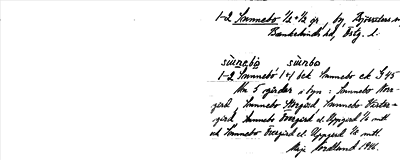 1-2 Sunnebo ½ + ½ gr, by, Björsäters sn
Bankekinds hd, Östg. l.
sùnəbo sùnbo
1-2 Sunnebo 1 o/ bck Sunnebo ek S 45
Nu 5 gårdar i byn: Sunnebo Norr-
gård, Sunnebo Storgård, Sunnebo Väster-
gård, Sunnebo Övergård el. Uppgård ⅛ mtl
och Sunnebo Övergård el. Uppgård ⅛ mtl.
Maj Nordlund 1946.